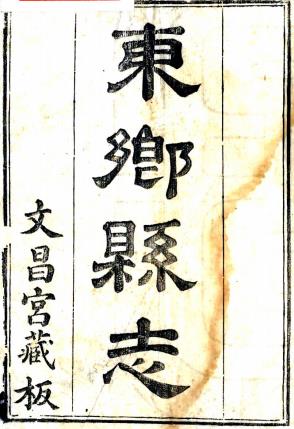 東鄉縣志
文昌宮藏板